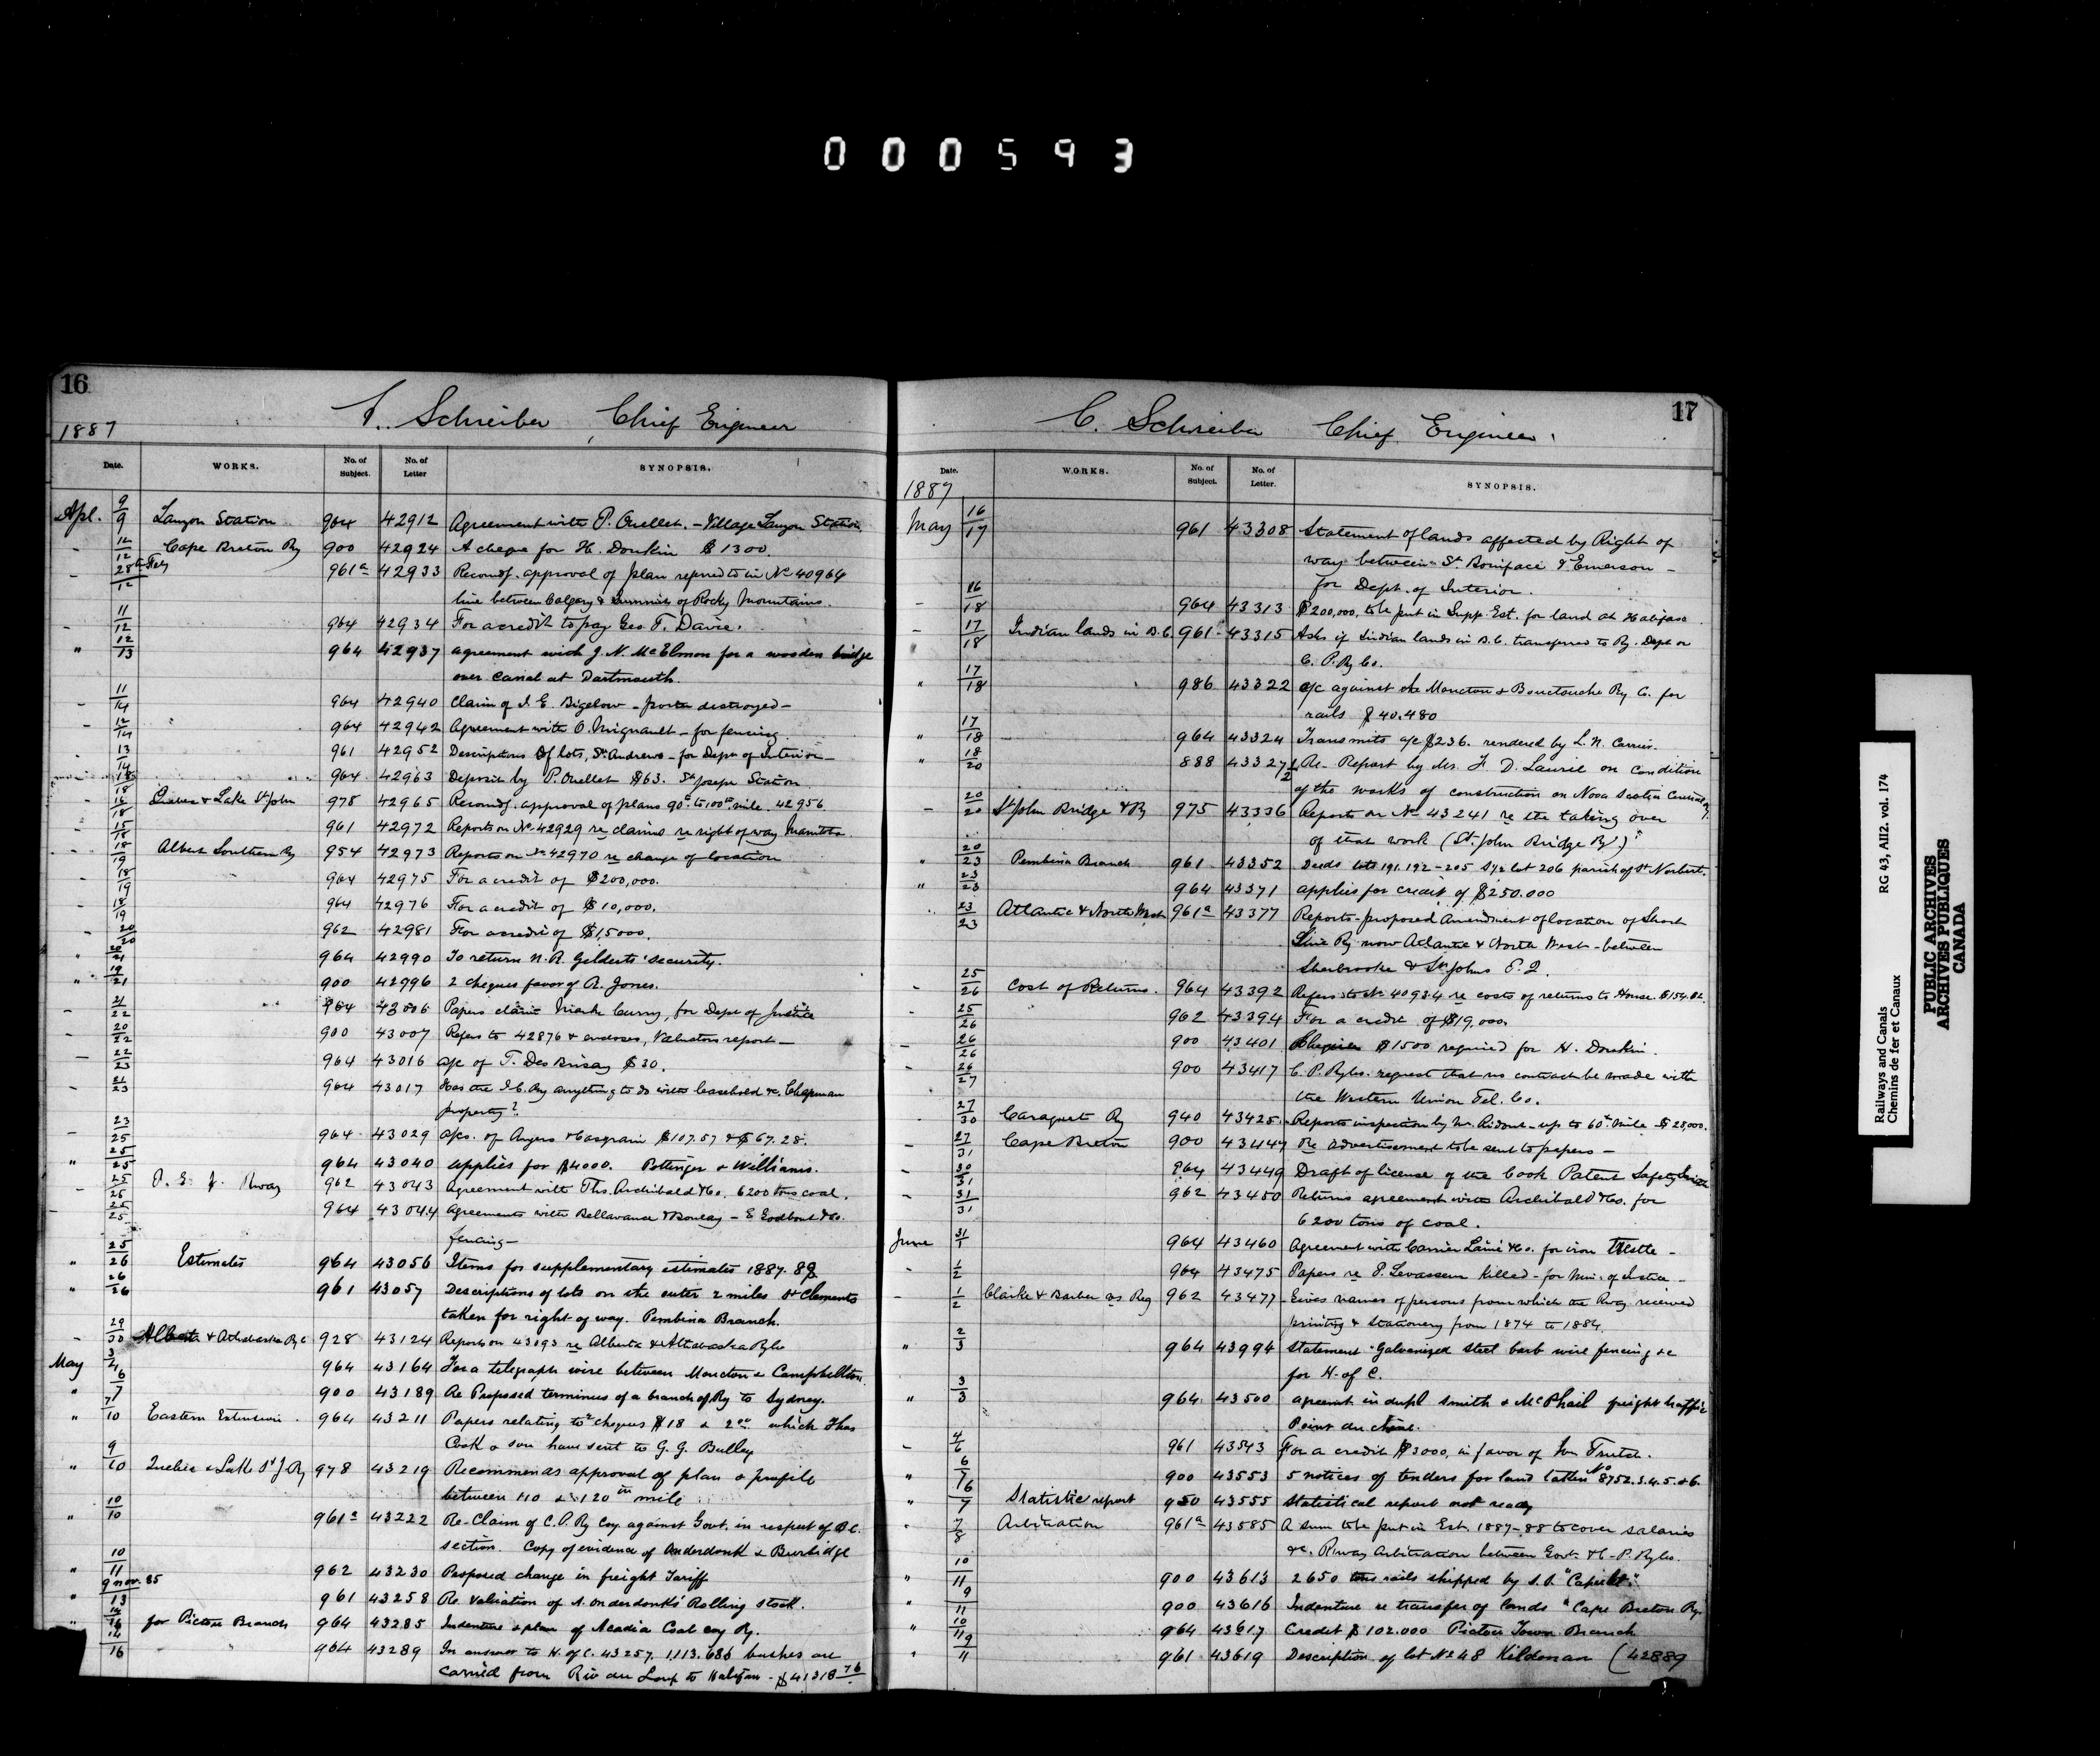 000593
16
C. Schreiber Chief Engineer
1887
Date. WORKS. No. of Subject. No. of Letter SYNOPSIS.
Apl. 9/9 Lauzon Station 964 42912 Agreement with P. Ouellet. - Village Lauzon Station.
" 12/12 Cape Breton Ry 900 42924 A cheque for H. Donkin $1300.
" 28th Feby/12 961a 42933 Recomds. approval of plan referred to in No 40964
line between Calgary & Summit of Rocky Mountains.
" 11/12 964 42934 For a credit to pay Geo T. Davie.
" 12/13 964 42937 agreement with J. N. McElmon for a wooden bridge
over Canal at Dartmouth.
" 11/14 964 42940 Claim of J. E. Bigelow - destroyed -
" 12/14 964 42942 Agreement with O. Mignault - for fencing.
" 13/14 961 42952 Descriptions of lots, St. Andrews - for Dept of Interior -
18/18 964 42963 Deposit by P. Ouellet $63. St Joseph Station
" 16/18 Quebec & Lake St John 978 42965 Recomds. approval of plans 90th to 100th mile. 42956
" 15/18 961 42972 Reports on No. 42929 re claims re right of way Manitoba.
" 18/19 Albert Southern Ry 954 42973 Reports on No 42970 re change of location
" 18/19 964 42975 For a credit of $200,000.
" 18/19 964 42976 For a credit of $10,000.
" 20/20 962 42981 For a credit of $15000.
" 20/21 964 42990 To return N. R. Gelderts' security.
" 19/21 900 42996 2 cheques favor of R. Jones.
" 21/22 964 43006 Papers claim Mark Curry, for Dept of Justice
" 20/22 900 43007 Refers to 42876 & encloses, Valuators report -
" 22/23 964 43016 a/c of T. DesBrisay $30.
" 21/23 964 43017 Has the I.C.Ry anything to do with leasehold &c. Chapman
property?
" 23/25 964 43029 a/cs. of Angers & Casgrain $107.57 & $67.28.
" 25/25 964 43040 applies for $4000. Pottinger & Williams.
" 25/25 P. E. I. Rway 962 43043 Agreement with Ths. Archibald & Co. 6200 tons coal.
" 25/25 964 43044 Agreements with Bellavance & Boulay - E Godbout & Co.
fencing -
" 25/26 Estimates 964 43056 Items for supplementary estimates 1887.88
" 26/26 961 43057 Descriptions of lots on the outer 2 miles St Clements
taken for right of way. Pembina Branch.
" 29/30 Alberta & Athabaska Ry Co 928 43124 Reports on 43093 re Alberta & Athabaska Ry Co
May 3/4 964 43164 For a telegraph wire between Moncton & Campbellton.
" 6/7 900 43189 Re Proposed terminus of a branch of Ry to Sydney.
" 7/10 Eastern Extension 964 43211 Papers relating to cheques $18 & 2 which Thos
Cook & son have sent to G. G. Bulley
" 9/10 Quebec & Lake St J. Ry 978 43219 Recommends approval of plan & profile
between 110 & 120th mile
" 10/10 961a 43222 Re-Claim of C. P. Ry Coy. against Govt. in respect of B.C.
section. Copy of evidence of Onderdonk & Burbidge
" 10/11 962 43230 Proposed change in freight Tariff
" 9 nov. 85/13 961 43258 Re. Valuation of A. Onderdonks' Rolling Stock.
" 14/16 for Pictou Branch 964 43285 Indenture & plan of Acadia Coal coy Ry.
14/16 964 43289 In answer to H. of C. 43257. 1113.686 bushes are
carried from Riv du Loup to Halifax - $41318 76
17
C. Schreiber Chief Engineer.
Date. WORKS. No. of Subject. No. of Letter. SYNOPSIS.
1887
May 16/17 961 43308 Statement of lands affected by Right of
way between St. Boniface & Emerson -
for Dept. of Interior.
" 16/18 964 43313 $200,000. to be put in Supp. Est. for land at Halifax
" 17/18 Indian lands in B.C. 961 43315 Asks if Indian lands in B.C. transferred to Ry. Dept or
C. P. Ry Co.
" 17/18 986 43322 a/c against the Moncton & Bouctouche Ry Co. for
rails $40.480
" 17/18 964 43324 Transmits a/c $236. rendered by L. N. Carrier.
" 18/20 888 43327 1/2 Re- Report by Mr. F. D. Laurie on condition
of the works of construction on Nova Scotia Central Ry.
" 20/20 St John Bridge & Ry 975 43336 Reports on No 43241 re the taking over
of that work (St. John Bridge Ry.)
" 20/23 Pembina Branch 961 43352 Deeds lots 191.192 - 205 S 1/2 lot 206 parish of St Norbert.
" 23/23 964 43371 applies for credit of $250.000
" 23/23 Atlantic & North West 961a 43377 Reports - proposed Amendment of location of Short
Line Ry now Atlantic & North West - between
Sherbrooke & St Johns P.Q.
" 25/26 Cost of Returns. 964 43392 Refers to No 40934 re costs of returns to House. $154.02.
" 25/26 962 43394 For a credit of $19,000.
" 26/26 900 43401 Cheques $1500 required for H. Donkin.
" 26/27 900 43417 C. P. Ry Co. request that no contract be made with
the Western Union Tel. Co.
" 27/30 Caraquet Ry 940 43425 Reports inspection by Mr. Ridout - up to 60th Mile $28,000.
" 27/31 Cape Breton 900 43447 Re advertisement to be sent to papers -
" 30/31 964 43449 Draft of license of the Cook Patent Safety
" 31/31 962 43450 Returns agreement with Archibald & Co. for
6200 tons of coal.
June 31/1 964 43460 Agreement with Carrier Lainé & Co. for iron trestle -
" 1/2 964 43475 Papers re P. Levasseur killed - for Min. of Justice -
" 1/2 Clarke & Barber vs Reg 962 43477 Gives names of persons from which the Rway received
printing & stationery from 1874 to 1884.
" 2/3 964 43994 Statement "Galvanized steel barb wire fencing &c
for H. of C.
" 3/3 964 43500 agreemt in dupl Smith & McPhail freight traffic
Point du Chêne.
" 4/6 961 43543 For a credit $3000, in favor of Jos Trutch.
" 6/7 900 43553 5 notices of tenders for land taken No 8752.3.4.5.&6.
" 6/7 Statistic report 950 43555 Statistical report not ready
" 7/8 Arbitration 961a 43585 A sum to be put in Est. 1887-88 to cover salaries
&c. Rway Arbitration between Govt. & C.P. Ry Co.
" 10/11 900 43613 2650 tons rails shipped by S.S. "
" 9/11 900 43616 Indenture re transfer of lands " Cape Breton Ry.
" 10/11 964 43617 Credit $102.000 Pictou Town Branch
" 9/11 961 43619 Description of lot No 48 Kildonan (42889
Railways and Canals RG 43, AII2. vol. 174
Chemins de fer et Canaux
PUBLIC ARCHIVES
ARCHIVES PUBLIQUES
CANADA